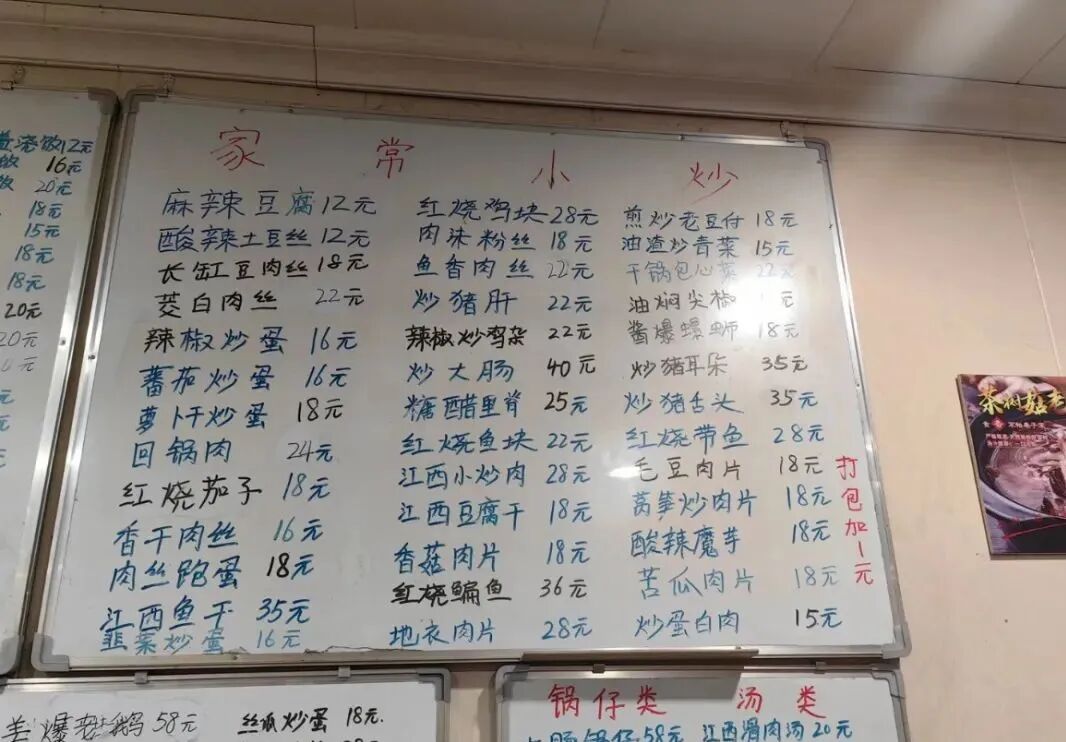 烧饭12元
16元
20元
18元
15元
18元
18元
20元
20元
家常小炒
麻辣豆腐12元
酸辣土豆丝12元
长缸豆肉丝18元
茭白肉丝 22元
辣椒炒蛋 16元
蕃茄炒蛋 16元
萝卜干炒蛋 18元
回锅肉 24元
红烧茄子 18元
香干肉丝 16元
肉丝跑蛋 18元
江西鱼干 35元
韭菜炒蛋 16元
红烧鸡块28元
肉沫粉丝 18元
鱼香肉丝 22元
炒猪肝 22元
辣椒炒鸡杂 22元
炒大肠 40元
糖醋里脊 25元
红烧鱼块 22元
江西小炒肉 28元
江西豆腐干 18元
香菇肉片 18元
红烧鳊鱼 36元
地衣肉片 28元
煎炒老豆付 18元
油渣炒青菜 15元
干锅包心菜 22元
油焖尖椒 元
酱爆螺蛳 18元
炒猪耳朵 35元
炒猪舌头 35元
红烧带鱼 28元
毛豆肉片 18元
莴笋炒肉片 18元
酸辣魔芋 18元
苦瓜肉片 18元
炒蛋白肉 15元
打包加1元
爆老鹅58元
丝瓜炒蛋 18元.
锅仔类 汤类
肠锅仔58元 江西滑肉汤20元